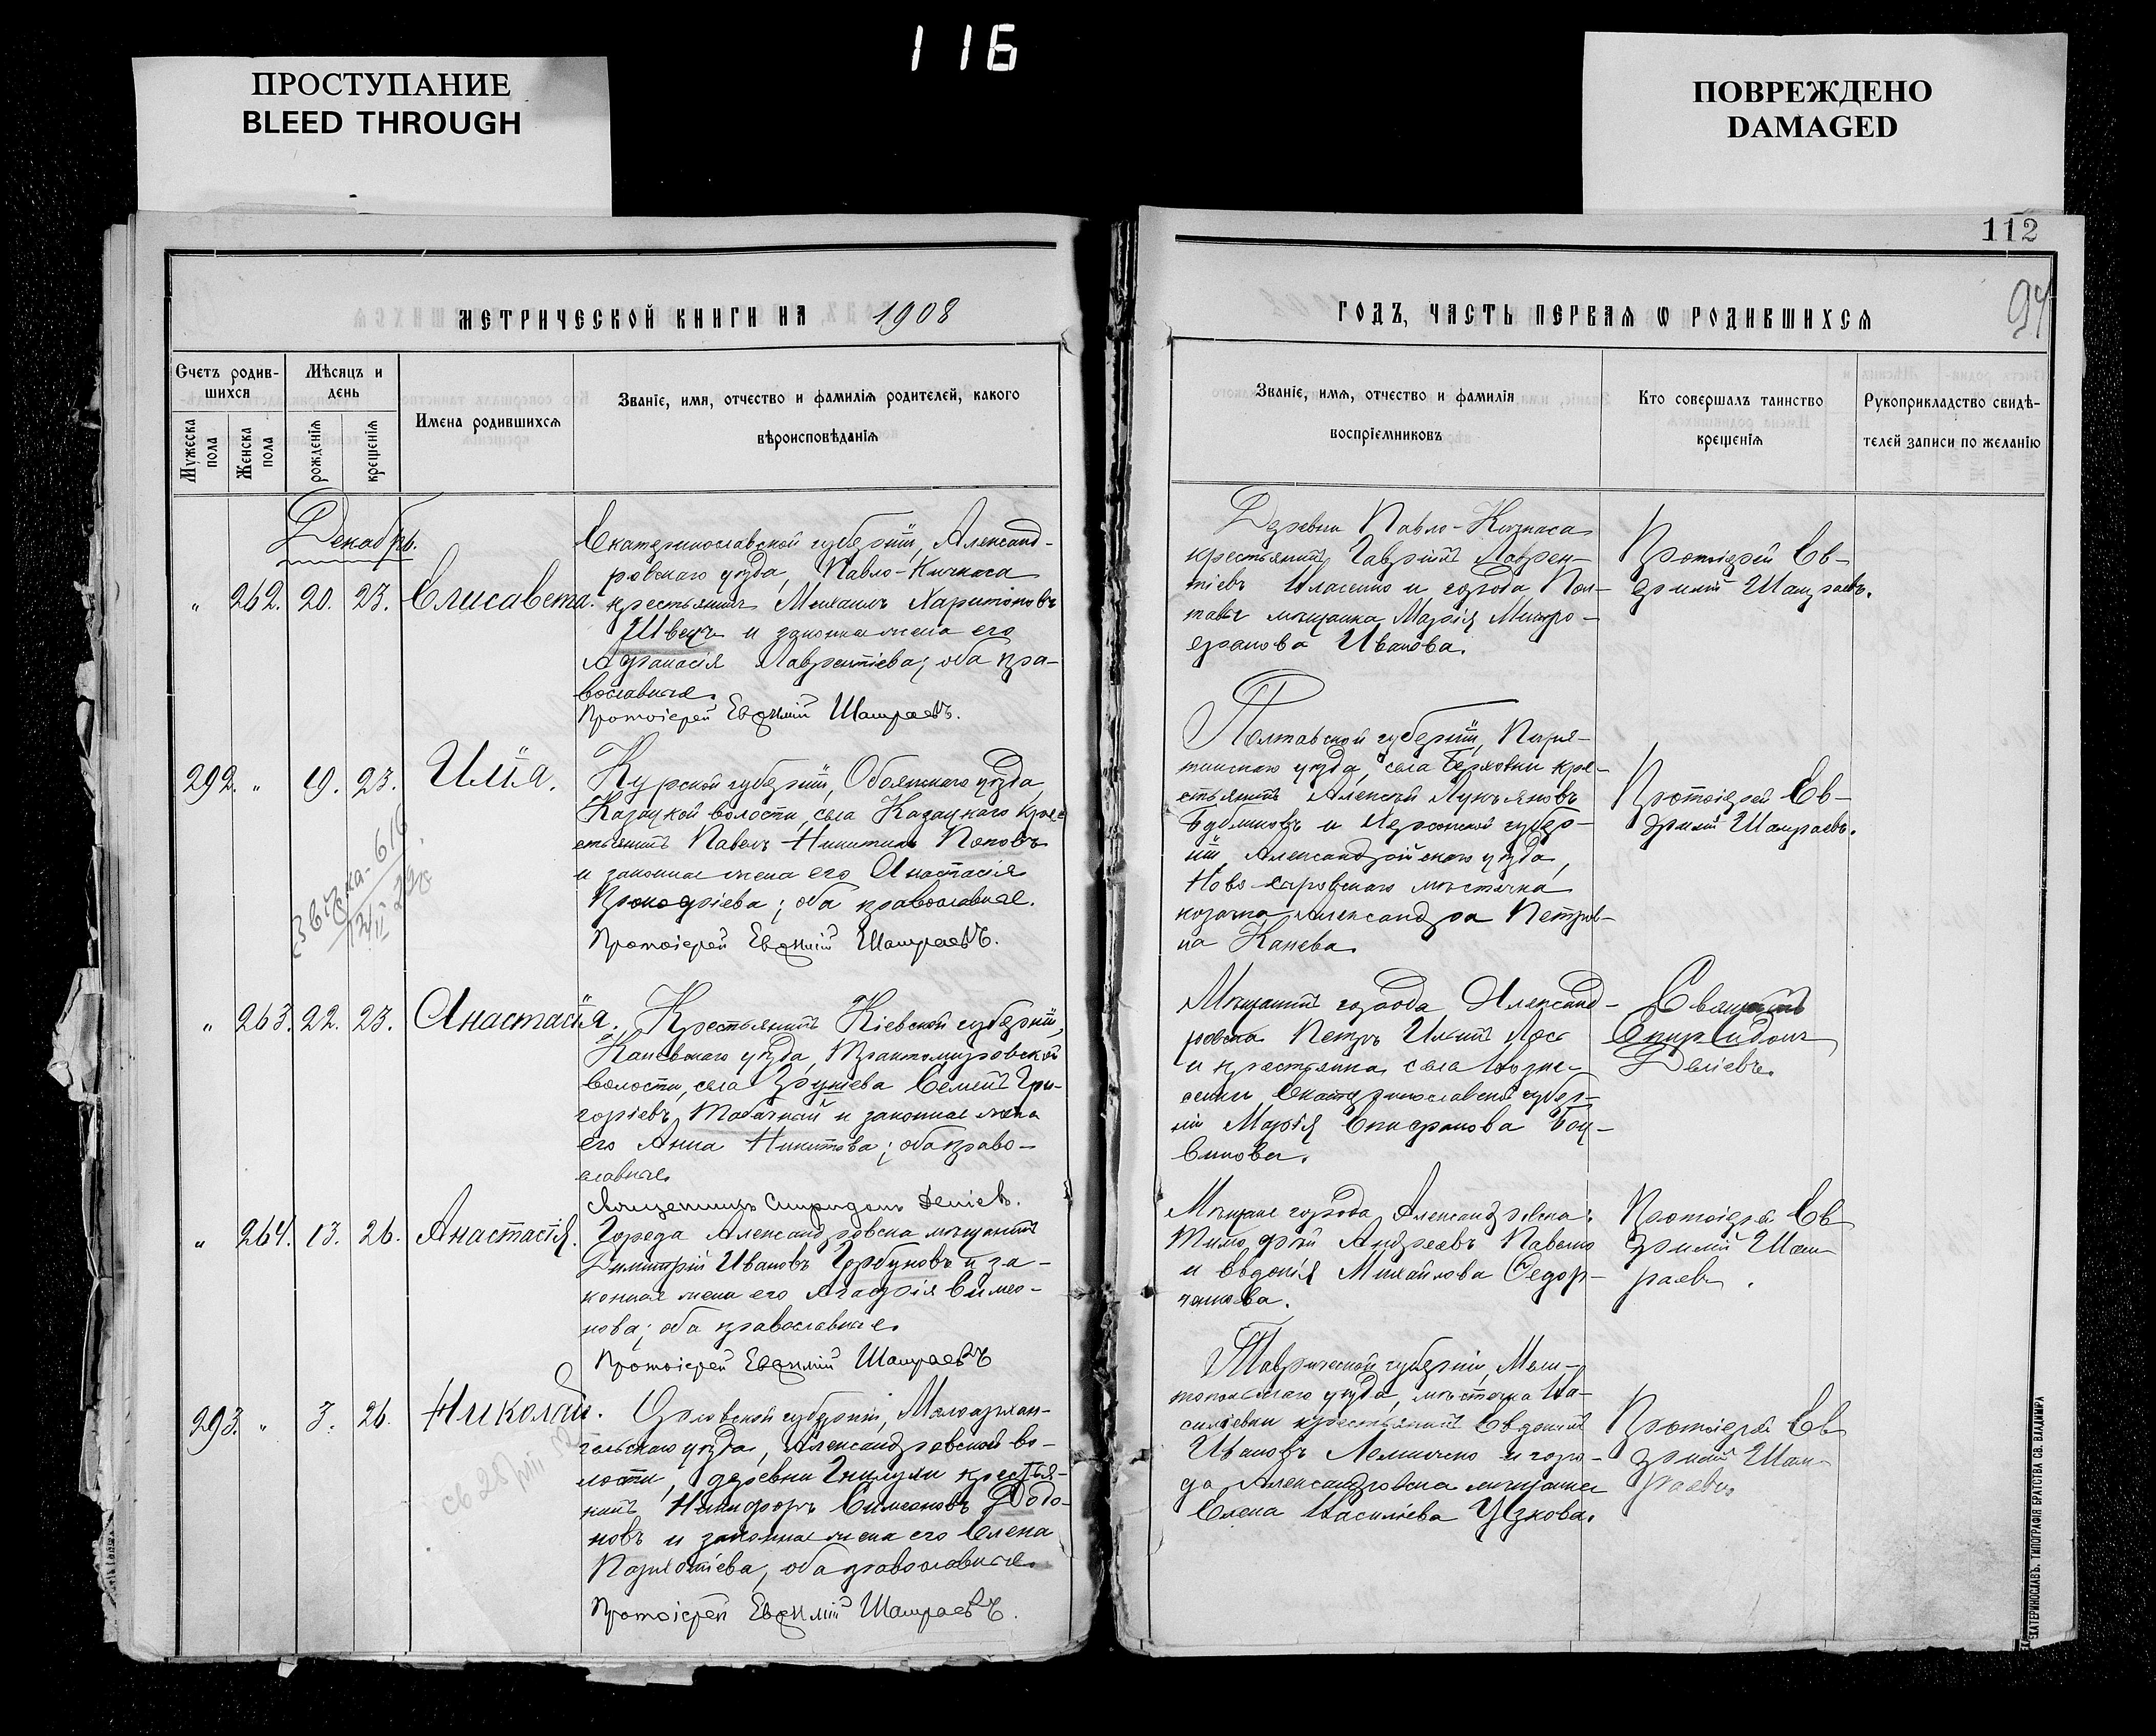 116
ПРОСТУПАНИЕ
BLEED THROUGH
ПОВРЕЖДЕНО
DAMAGED
112
94
МЕТРИЧЕСКОЙ КНИГИ НА 1908
ГОДЪ, ЧАСТЬ ПЕРВАЯ Ѡ РОДИВШИХСЯ
Счетъ родив-
шихся
Мужеска пола
Женска пола
Мѣсяцъ и
день
рожденія
крещенія
Имена родившихся
Званіе, имя, отчество и фамилія родителей, какого
вѣроисповѣданія
Званіе, имя, отчество и фамилія
воспріемниковъ
Кто совершалъ таинство
крещенія
Рукоприкладство свидѣ-
телей записи по желанію
Декабрь.
" 262. 20. 23. Елисавета.
Екатеринославской губерніи, Александ-
ровскаго уѣзда, Павло-Кичкаса
крестьянинъ Михаилъ Харитоновъ
Швецъ и законная жена его
Афанасія Лаврентіева; оба пра-
вославные.
Протоіерей Евѳимій Шамраевъ.
Деревни Павло-Кичкаса
крестьянинъ Гавріилъ Лаврен-
тіевъ Власенко и города Пол-
тавы мѣщанка Марія Митро-
фанова Иванова.
Протоіерей Ев-
ѳимій Шамраевъ.
292. " 19. 23. Илія.
Курской губерніи, Обоянскаго уѣзда,
Казацкой волости, села Казацкаго кре-
стьянинъ Павелъ Никитинъ Поповъ
и законная жена его Анастасія
Прокофіева; оба православные.
Протоіерей Евѳимій Шамраевъ.
Полтавской губерніи, Пиря-
тинскаго уѣзда, села Берховки кре-
стьянинъ Алексѣй Лукьяновъ
Бубликовъ и Херсонской губер-
ніи, Александрійскаго уѣзда,
мѣстечка
Александра Петров-
на Канева.
Протоіерей Ев-
ѳимій Шамраевъ.
" 263. 22. 23. Анастасія.
Крестьянинъ Кіевской губерніи,
Каневскаго уѣзда, Трактомировской
волости, села Григорь-
горіевъ Табачный и законная жена
его Анна Никитова; оба право-
славные.
Священникъ Спиридонъ Деліевъ.
Мѣщанинъ города Александ-
ровска Петръ Ильинъ Лось
и крестьянка села Возне-
сенки Екатеринославской губер-
ніи Марія
Священникъ
Спиридонъ
Деліевъ.
" 264. 13. 26. Анастасія.
Города Александровска мѣщанинъ
Димитрій Ивановъ Горбуновъ и за-
конная жена его Агафія Симео-
нова; оба православные.
Протоіерей Евѳимій Шамраевъ
Мѣщане города Александровска:
Тимофей Андреевъ Павленко
и Евдокія Михайлова Ѳедор-
ченкова.
Протоіерей Ев-
ѳимій Шам-
раевъ.
293. " 3. 26. Николай.
Орловской губерніи, Малоархан-
гельскаго уѣзда, Александровской во-
лости, деревни Гнилуши крестья-
нинъ Никифоръ Симеоновъ Додо-
новъ и законная жена его Елена
оба православные.
Протоіерей Евѳимій Шамраевъ.
Таврической губерніи, Мели-
топольскаго уѣзда, мѣстечка Ва-
сильевки крестьянинъ Евдокимъ
Ивановъ и горо-
да Александровска мѣщанка
Елена Васильева Узкова.
Протоіерей Ев-
ѳимій Шам-
раевъ.
ЕКАТЕРИНОСЛАВЪ. ТИПОГРАФІЯ БРАТСТВА СВ. ВЛАДИМІРА